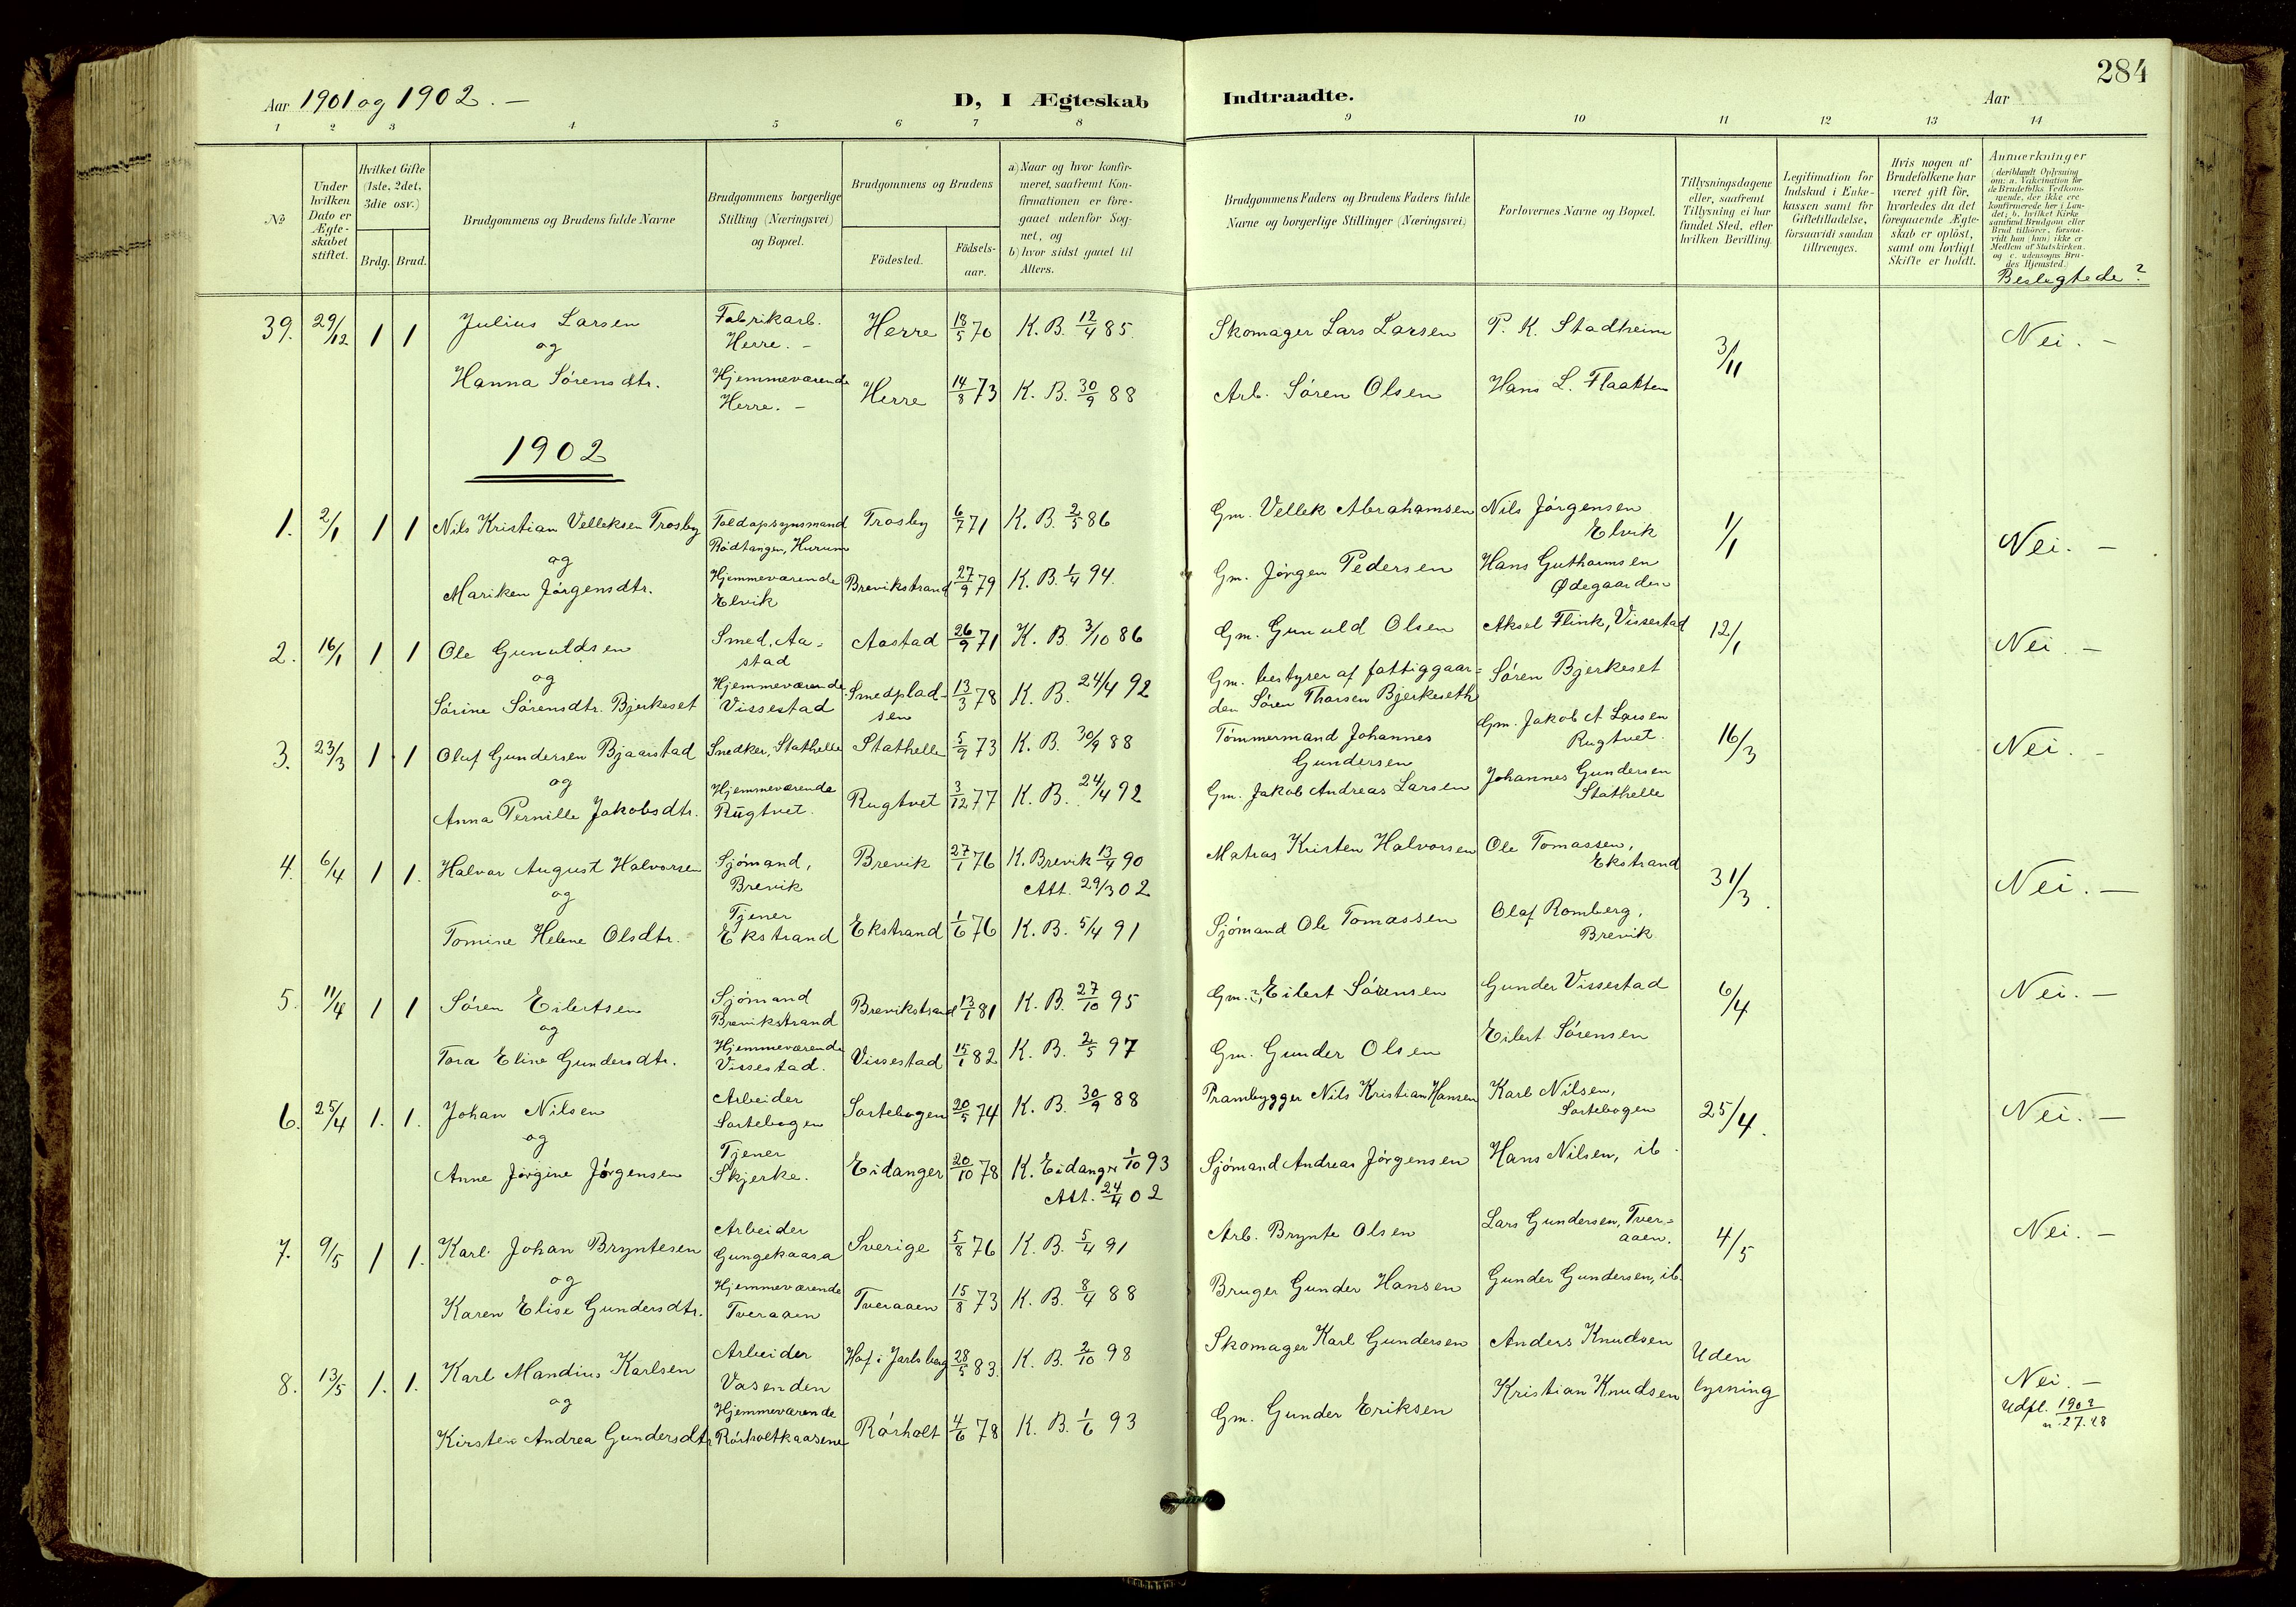 284
Aar 1901 og 1902. –
D, I Ægteskab Indtraadte.
Aar
1 2 3 4 5 6 7 8 9 10 11 12 13 14
No
Under hvilken Dato er Ægteskabet stiftet.
Hvilket Gifte (1ste, 2det, 3die osv.)
Brdg. Brud.
Brudgommens og Brudens fulde Navne
Brudgommens borgerlige Stilling (Næringsvei) og Bopæl.
Brudgommens og Brudens
Födested.
Födsels-aar.
a) Naar og hvor konfir-
meret, saafremt Kon-
firmationen er fore-
gaaet udenfor Sog-
net, og
b) hvor sidst gaaet til
Alters.
Brudgommens Faders og Brudens Faders fulde
Navne og borgerlige Stillinger (Næringsvei)
Forlovernes Navne og Bopæl.
Tillysningsdagene
eller, saafremt
Tillysning ei har
fundet Sted, efter
hvilken Bevilling.
Legitimation for
Indskud i Enke-
kassen samt for
Giftetilladelse,
forsaavidt saadan
tiltrænges.
Hvis nogen af
Brudefolkene har
været gift för,
hvorledes da det
foregaaende Ægte-
skab er oplöst,
samt om lovligt
Skifte er holdt.
Anmerkninger
(deriblandt Oplysning
om: a. Vakcination for
de Brudefolks Vedkom-
mende, der ikke ere
konfirmerede her i Lan-
det; b. hvilket Kirke
samfund Brudgom eller
Brud tilhörer, forsaa-
vidt han (hun) ikke er
Medlem af Statskirken.
og c. udensogns Bru-
des Hjemsted.)
Beslegtede?
39. 29/12 1 1 Julius Larsen Fabrikarb. Herre. – Herre 18/5 70 K. B. 12/4 85. Skomager Lars Larsen P. K. Stadheim 3/11 Nei. –
og
Hanna Sörensdtr. Hjemmeværende Herre. – Herre 14/8 73 K. B. 30/9 88 Arb. Sören Olsen Hans L. Flaatten
1902
1. 2/1 1 1 Nils Kristian Velleksen Trosby Toldopsynsmand Rödtangen, Hurum Trosby 6/7 71 K. B. 2/5 86 Gm. Vellek Abrahamsen Nils Jörgensen Elvik 1/1 Nei. –
og
Mariken Jörgensdtr. Hjemmeværende Elvik Brevikstrand 27/9 79 K. B. 1/4 94. Gm. Jörgen Pedersen Hans Guthormsen Ødegaarden
2. 16/1 1 1 Ole Gunuldsen Smed, Aa-stad Aastad 26/9 71 K. B. 3/10 86 Gm. Gunuld Olsen Aksel Flink, Vissestad 12/1 Nei. –
og
Sörine Sörensdtr. Bjerkeset Hjemmeværende Vissestad Smedplad-sen 13/3 78 K. B. 24/4 92 Gm. bestyrer af fattiggaar=den Sören Thorsen Bjerkeseth Sören Bjerkeset
3. 23/3 1 1 Oluf Gundersen Bjaarstad Snedker, Stathelle Stathelle 5/9 73 K. B. 30/9 88 Tömmermand Johannes Gundersen Gm. Jakob A Larsen Rugtvet. 16/3 Nei. –
og
Anna Pernille Jakobsdtr. Hjemmeværende Rugtvet. Rugtvet 3/12 77 K. B. 24/4 92 Gm. Jakob Andreas Larsen Johannes Gundersen Stathelle
4. 6/4 1 1. Halvor August Halvorsen Sjömand, Brevik Brevik 27/1 76 K. Brevik 13/4 90 Att. 29/3 02 Matros Kristen Halvorsen Ole Tomassen, Ekstrand 31/3. Nei. –
og
Tomine Helene Olsdtr. Tjener Ekstrand Ekstrand 1/6 76 K. B. 5/4 91 Sjömand Ole Tomassen Olaf Romberg, Brevik
5. 11/4 1 1 Sören Eilertsen Sjömand Brevikstrand Brevikstrand 13/1 81 K. B. 27/10 95 Gm. ?, Eilert Sörensen Gunder Vissestad 6/4 Nei. –
og
Tora Eline Gundersdtr. Hjemmeværende Vissestad. Vissestad 15/1 82 K. B. 2/5 97 Gm. Gunder Olsen Eilert Sörensen
6. 25/4 1. 1. Johan Nilsen Arbeider Sortebogen Sortebogen 20/5 74 K. B. 30/9 88 Prambygger Nils Kristian Hansen Karl Nilsen, Sortebogen 25/4. Nei. –
og
Anne Jörgine Jörgensen Tjener Skjerke. Eidanger 20/10 78 K. Eidangr 1/10 93 Att. 24/4 02 Sjömand Andreas Jörgensen Hans Nilsen, ib.
7. 9/5 1 1. Karl Johan Bryntesen Arbeider Gungekaasa Sverige 5/8 76 K. B. 5/4 91 Arb. Brynte Olsen Lars Gundersen, Tver=aaen. 4/5 Nei. –
og
Karen Elise Gundersdtr. Hjemmeværende Tveraaen Tveraaen 15/8 73 K. B. 8/4 88 Bruger Gunder Hansen Gunder Gundersen, ib.
8. 13/5 1. 1. Karl Mandius Karlsen Arbeider Vasenden Hof i Jarlsberg 28/5 83. K. B. 2/10 98 Skomager Karl Gundersen Anders Knudsen Uden lysning Nei. –
og
Kirsten Andrea Gundersdtr Hjemmeværende Rörholtkaasene Rörholt 4/6 78 K. B. 1/6 93 Gm. Gunder Eriksen Kristian Knudsen Udfl. 1902 n. 27.28